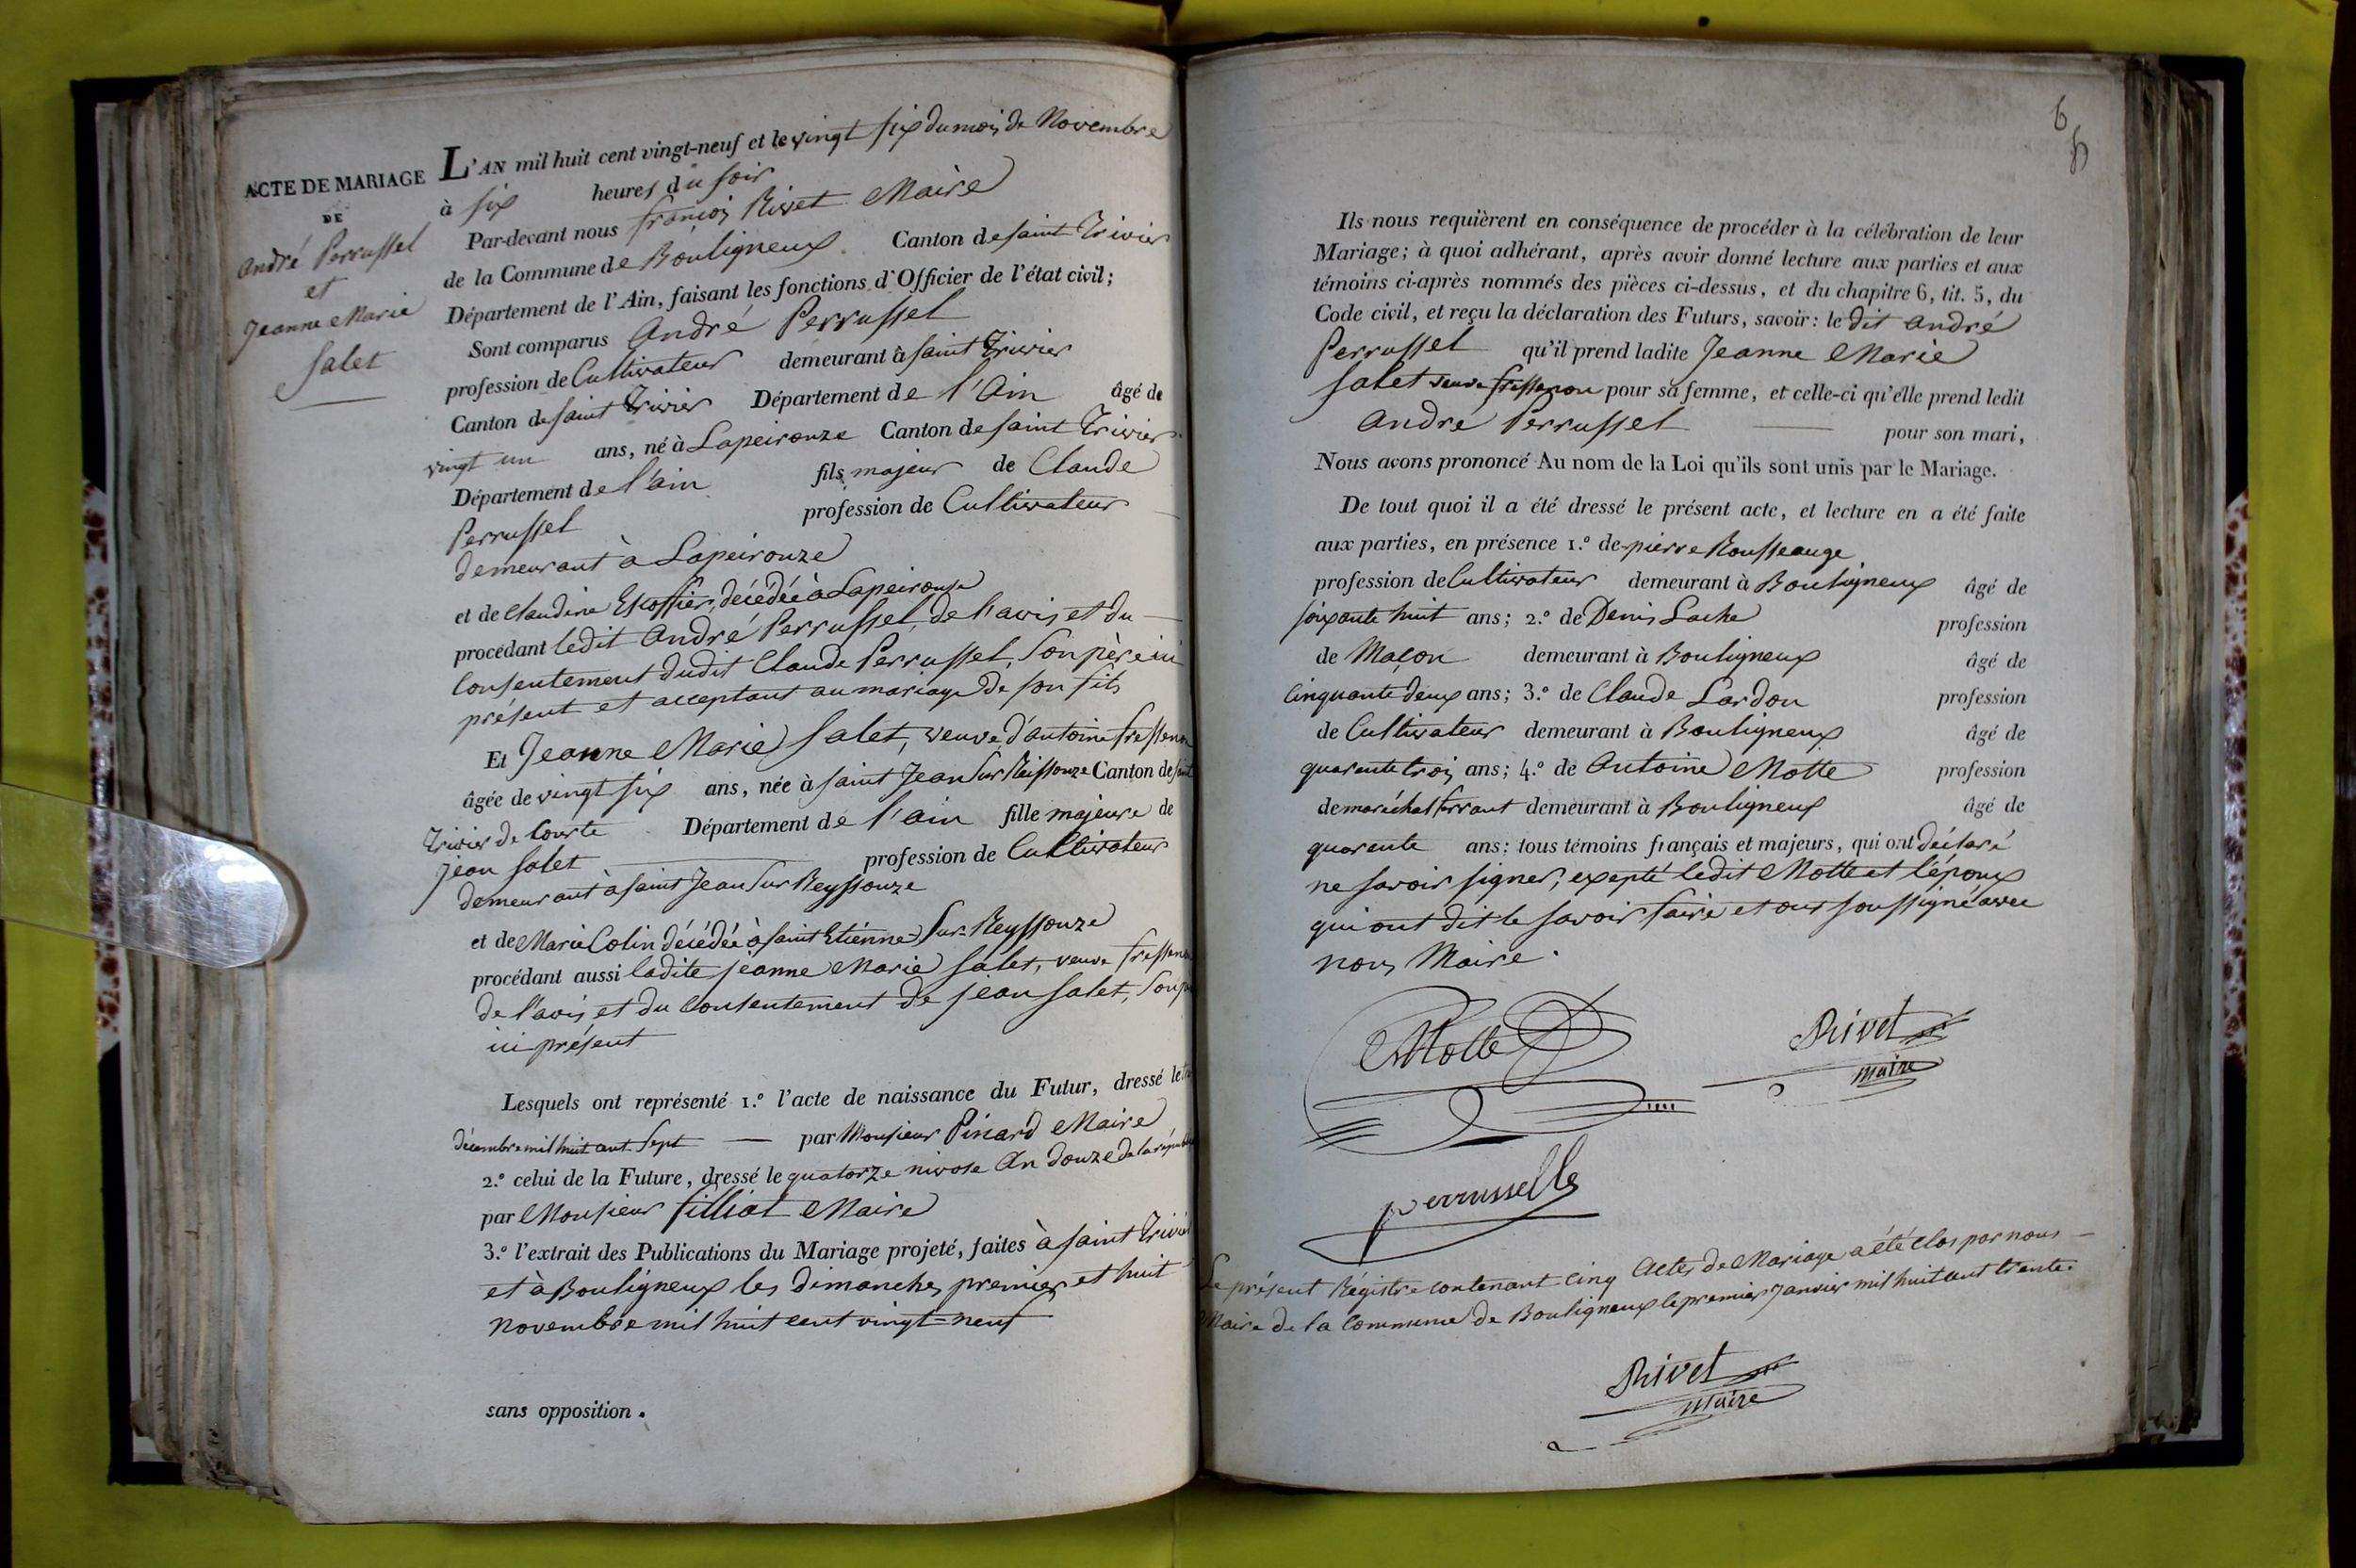 ACTE DE MARIAGE
DE
André Perrussel
et
Jeanne Marie
Salet
L'AN mil huit cent vingt-neuf et le vingt six du mois de Novembre
à six heures du soir
Par-devant nous françois Rivet Maire
de la Commune de Bouligneux Canton de saint Trivier
Département de l'Ain, faisant les fonctions d'Officier de l'état civil;
Sont comparus André Perrussel
profession de Cultivateur demeurant à saint Trivier
Canton de saint Trivier Département de l'Ain âgé de
vingt un ans, né à Lapeirouze Canton de saint Trivier
Département de l'ain fils majeur de Claude
Perrussel profession de Cultivateur
demeurant à Lapeirouze
et de Claudine Escoffier, décédée à Lapeirouze
procédant ledit André Perrussel, de l'avis et du
consentement dudit Claude Perrussel, son père ici
présent et acceptant au mariage de son fils
Et Jeanne Marie Salet, veuve d'antoine
âgée de vingt six ans, née à saint Jean sur Reissouze Canton de saint
Trivier de Courte Département de l'ain fille majeure de
jean salet profession de Cultivateur
demeurant à saint Jean sur Reyssouze
et de Marie Colin décédée à saint Etienne-sur-Reyssouze
procédant aussi ladite jeanne Marie Salet, veuve
de l'avis et du consentement de jean salet, son
ici présent
Lesquels ont représenté 1.° l'acte de naissance du Futur, dressé le
décembre mil huit cent sept par Monsieur Pinard Maire
2.° celui de la Future, dressé le quatorze nivose An douze de la
par Monsieur filliat Maire
3.° l'extrait des Publications du Mariage projeté, faites à saint Trivier
et à Bouligneux les dimanches premier et huit
novembre mil huit cent vingt-neuf
sans opposition.
6
Ils nous requièrent en conséquence de procéder à la célébration de leur
Mariage; à quoi adhérant, après avoir donné lecture aux parties et aux
témoins ci-après nommés des pièces ci-dessus, et du chapitre 6, tit. 5, du
Code civil, et reçu la déclaration des Futurs, savoir: le dit André
Perrussel qu'il prend ladite Jeanne Marie
Salet veuve pour sa femme, et celle-ci qu'elle prend ledit
André Perrussel pour son mari,
Nous avons prononcé Au nom de la Loi qu'ils sont unis par le Mariage.
De tout quoi il a été dressé le présent acte, et lecture en a été faite
aux parties, en présence 1.° de pierre Rousseauge
profession de Cultivateur demeurant à Bouligneux âgé de
soixante huit ans; 2.° de Denis Lache profession
de Maçon demeurant à Bouligneux âgé de
Cinquante deux ans; 3.° de Claude Lardon profession
de Cultivateur demeurant à Bouligneux âgé de
quarante trois ans; 4.° de Antoine Motte profession
de maréchal ferrant demeurant à Bouligneux âgé de
quarante ans; tous témoins français et majeurs, qui ont déclaré
ne savoir signer, exepté ledit Motte et l'époux
qui ont dit le savoir faire et ont soussigné avec
nous Maire.
Motte
Rivet
maire
perrusselle
Le présent Régistre contenant Cinq Actes de Mariage a été Clos par nous
Maire de la Commune de Bouligneux le premier Janvier mil huit cent trente.
Rivet
maire